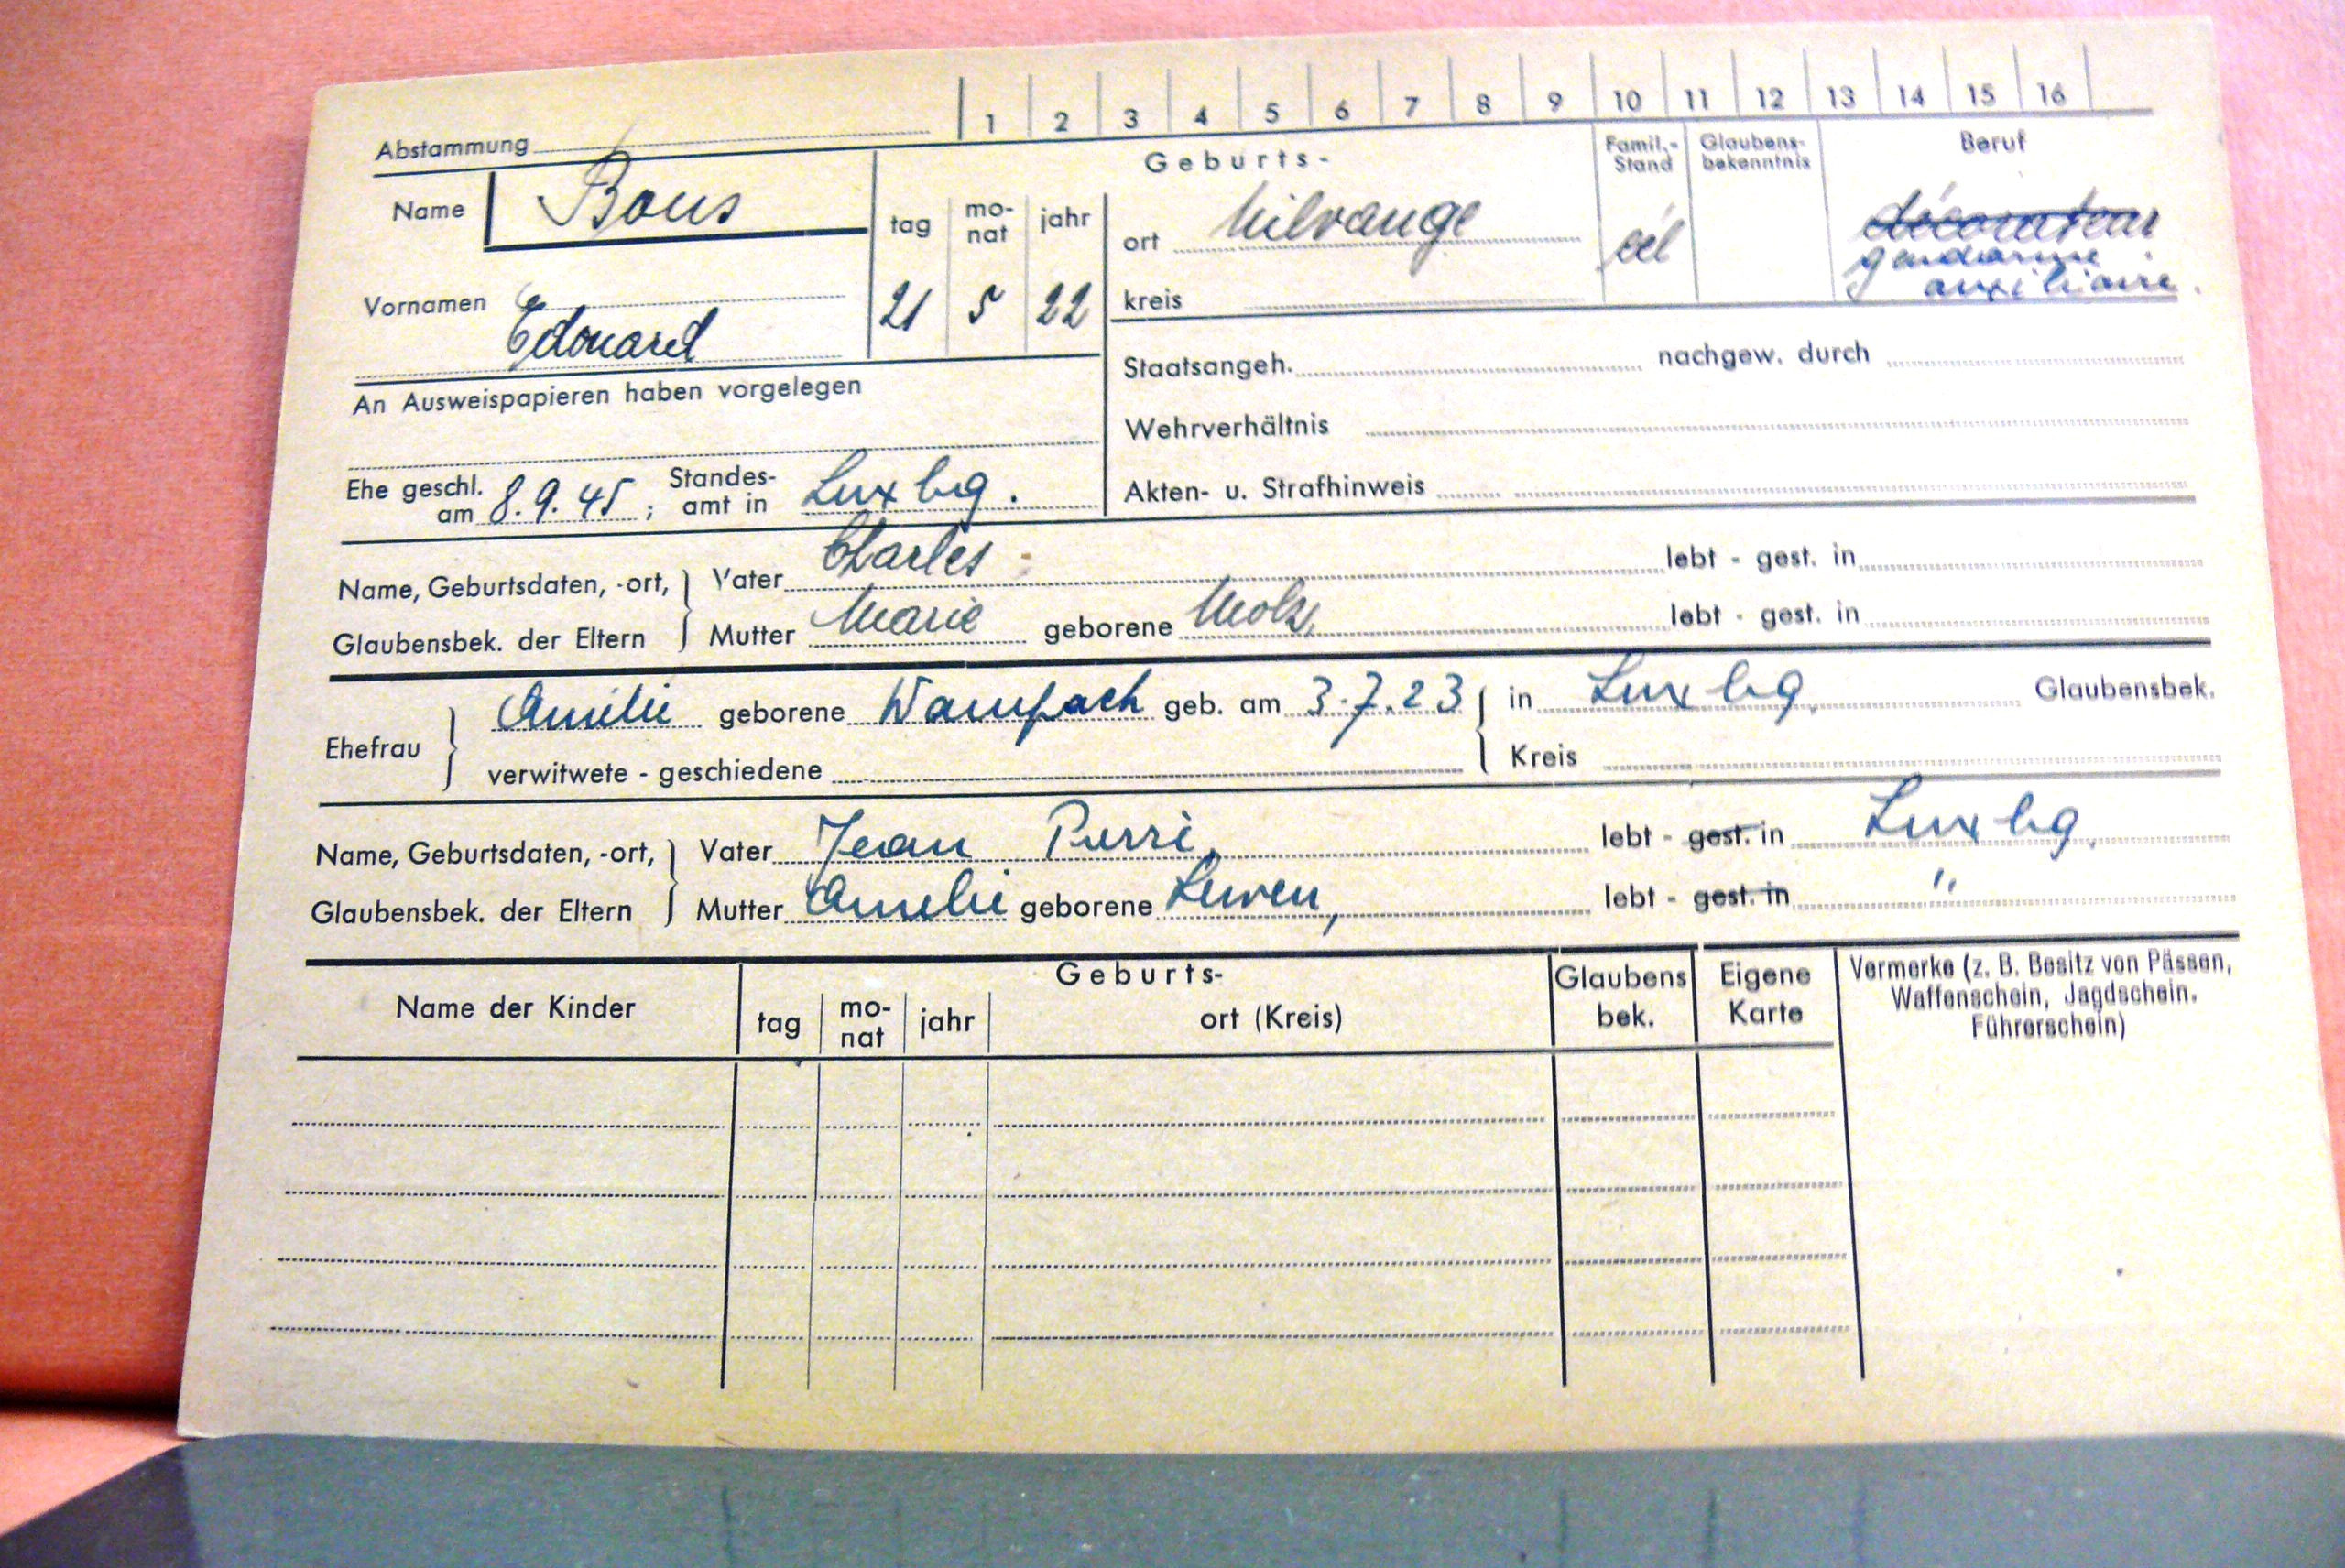 1 2 3 4 5 6 7 8 9 10 11 12 13 14 15 16
Abstammung
Geburts-
Famil.-Stand Glaubens-bekenntnis Beruf
Name Bous tag mo-nat jahr ort Nilvange cél décorateur
gendarme
auxiliaire.
Vornamen Edouard 21 5 22 kreis
Staatsangeh. nachgew. durch
An Ausweispapieren haben vorgelegen
Wehrverhältnis
Ehe geschl. am 8.9.45; Standes-amt in Luxbg. Akten- u. Strafhinweis
Name, Geburtsdaten, -ort, Vater Charles lebt - gest. in
Glaubensbek. der Eltern Mutter Marie geborene Molz, lebt - gest. in
Amélie geborene Wampach geb. am 3.7.23 in Luxbg. Glaubensbek.
Ehefrau
verwitwete - geschiedene Kreis
Name, Geburtsdaten, -ort, Vater Jean Pierre, lebt - gest. in Luxbg.
Glaubensbek. der Eltern Mutter Amelie geborene lebt - gest. in "
Geburts-
Name der Kinder tag mo-nat jahr ort (Kreis) Glaubens bek. Eigene Karte Vermerke (z. B. Besitz von Pässen,
Waffenschein, Jagdschein.
Führerschein)